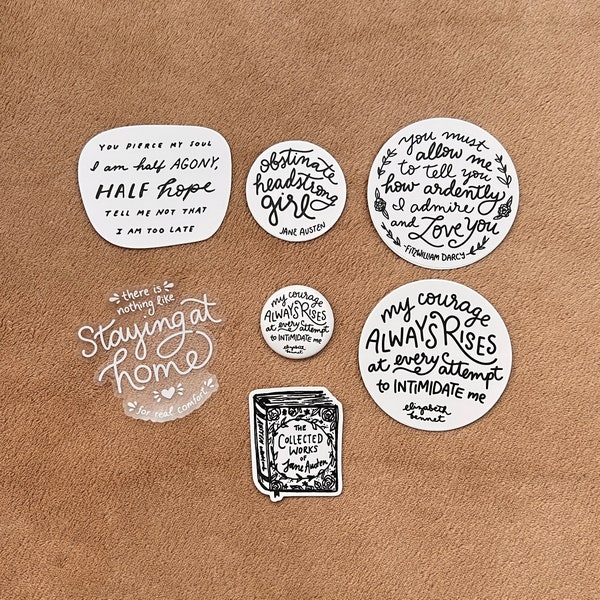 YOU PIERCE MY SOUL
I am half AGONY,
HALF hope
TELL ME NOT THAT
I AM TOO LATE
obstinate
headstrong
girl
JANE AUSTEN
you must
allow me
to tell you
how ardently
I admire
and Love you
-FITZWILLIAM DARCY-
there is
nothing like
Staying at
home
for real comfort
my courage
ALWAYS RISES
at every attempt
to INTIMIDATE me
elizabeth bennet
my courage
ALWAYS RISES
at every attempt
to INTIMIDATE me
elizabeth
bennet
THE
COLLECTED
WORKS
of
Jane Austen